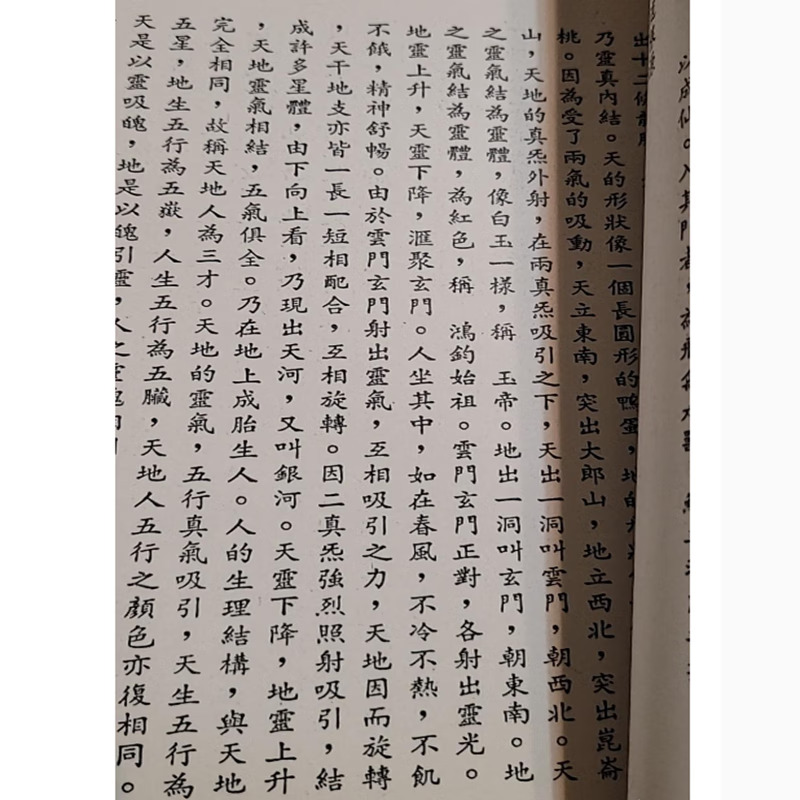 以成仙。入其門者，為
出十二條龍
乃靈真內結。天的形狀像一個長圓形的鴨蛋，地的
桃。因為受了兩氣的吸動，天立東南，突出大郎山，地立西北，突出崑崙
山，天地的真炁外射，在兩真炁吸引之下，天出一洞叫雲門，朝西北。天
之靈氣結為靈體，像白玉一樣，稱　玉帝。地出一洞叫玄門，朝東南。地
之靈氣結為靈體，為紅色，稱　鴻鈞始祖。雲門玄門正對，各射出靈光。
地靈上升，天靈下降，滙聚玄門。人坐其中，如在春風，不冷不熱，不飢
不餓，精神舒暢。由於雲門玄門射出靈氣，互相吸引之力，天地因而旋轉
，天干地支亦皆一長一短相配合，互相旋轉。因二真炁強烈照射吸引，結
成許多星體，由下向上看，乃現出天河，又叫銀河。天靈下降，地靈上升
，天地靈氣相結，五氣俱全。乃在地上成胎生人。人的生理結構，與天地
完全相同，故稱天地人為三才。天地的靈氣，五行真氣吸引，天生五行為
五星，地生五行為五嶽，人生五行為五臟，天地人五行之顏色亦復相同。
天是以靈吸魄，地是以魄引靈，人之靈魄